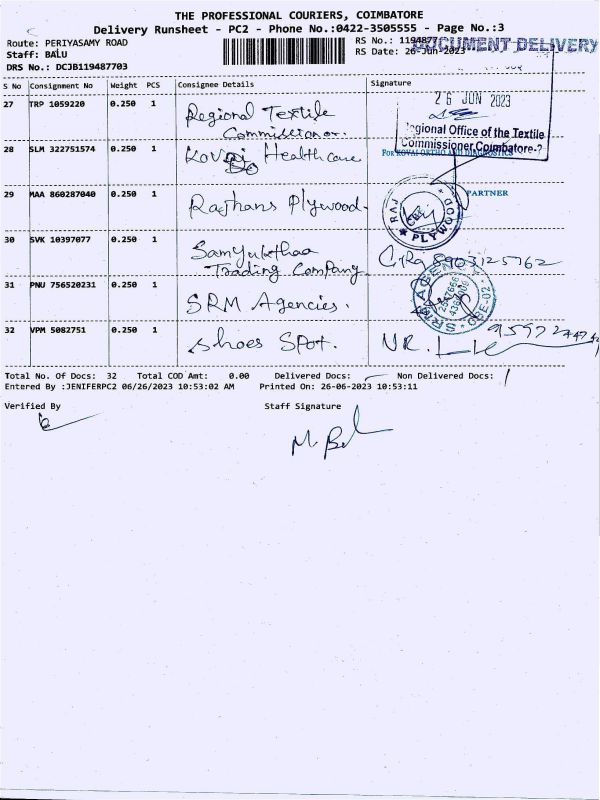 THE PROFESSIONAL COURIERS, COIMBATORE
Delivery Runsheet - PC2 - Phone No.:0422-3505555 - Page No.:3
Route: PERIYASAMY ROAD
RS No.: 1194877
DOCUMENT DELIVERY
Staff: BALU
RS Date: 26-Jun-2023
DRS No.: DCJB119487703
S No Consignment No Weight PCS Consignee Details Signature
27 TRP 1059220 0.250 1 Regional Textile
Commissioner.
26 JUN 2023
Regional Office of the Textile
Commissioner Coimbatore-2
28 SLM 322751574 0.250 1 Kovai Health care
For KOVAI ORTHO AND DIAGNOSTICS
29 MAA 860287040 0.250 1 Rajhans Plywood.
RAJ PLYWOOD CBE
PARTNER
30 SVK 10397077 0.250 1 Samyukthaa
Trading Company.
8903125762
31 PNU 756520231 0.250 1 SRM Agencies.
SRM AGENCY CBE-02
32 VPM 5082751 0.250 1 Shoes Spot.
VR.
Total No. Of Docs: 32 Total COD Amt: 0.00 Delivered Docs: Non Delivered Docs: /
Entered By :JENIFERPC2 06/26/2023 10:53:02 AM Printed On: 26-06-2023 10:53:11
Verified By Staff Signature